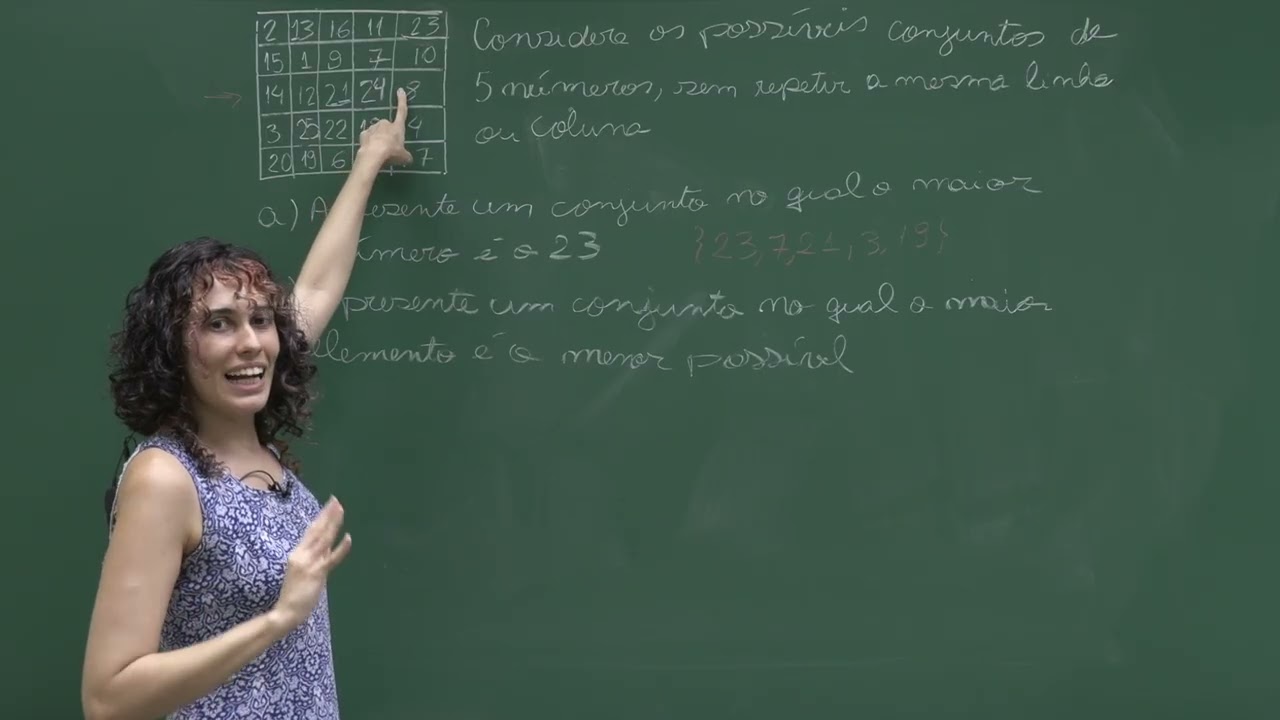 12 13 16 11 23
15 1 9 7 10
14 12 21 24 8
3 25 22 4
20 19 6 7
Considere os possíveis conjuntos de
5 números, sem repetir a mesma linha
ou coluna
a) A esente um conjunto no qual o maior
úmero é o 23 {23, 7, 21, 3, 19}
presente um conjunto no qual o maior
elemento é o menor possível